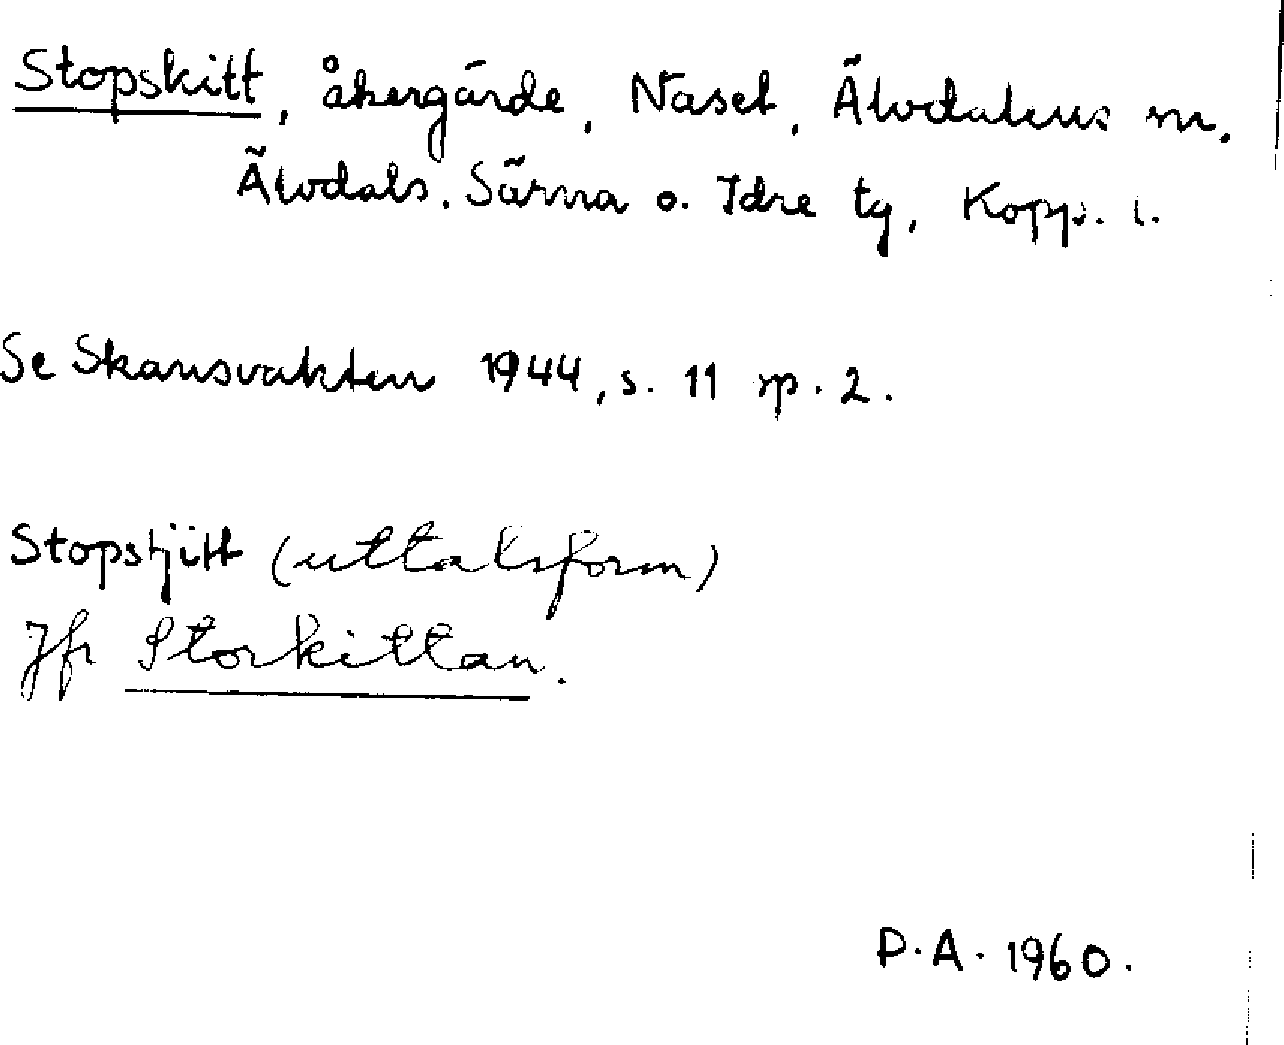 Stopskitt, åkergärde, Näset, Älvdalens m.
Älvdals, Särna o. Idre tg, Kopp. l.
Se Skansvakten 1944, s. 11 sp. 2.
Stopstjitt (uttalsform)
Jfr Storkittan.
D.A. 1960.